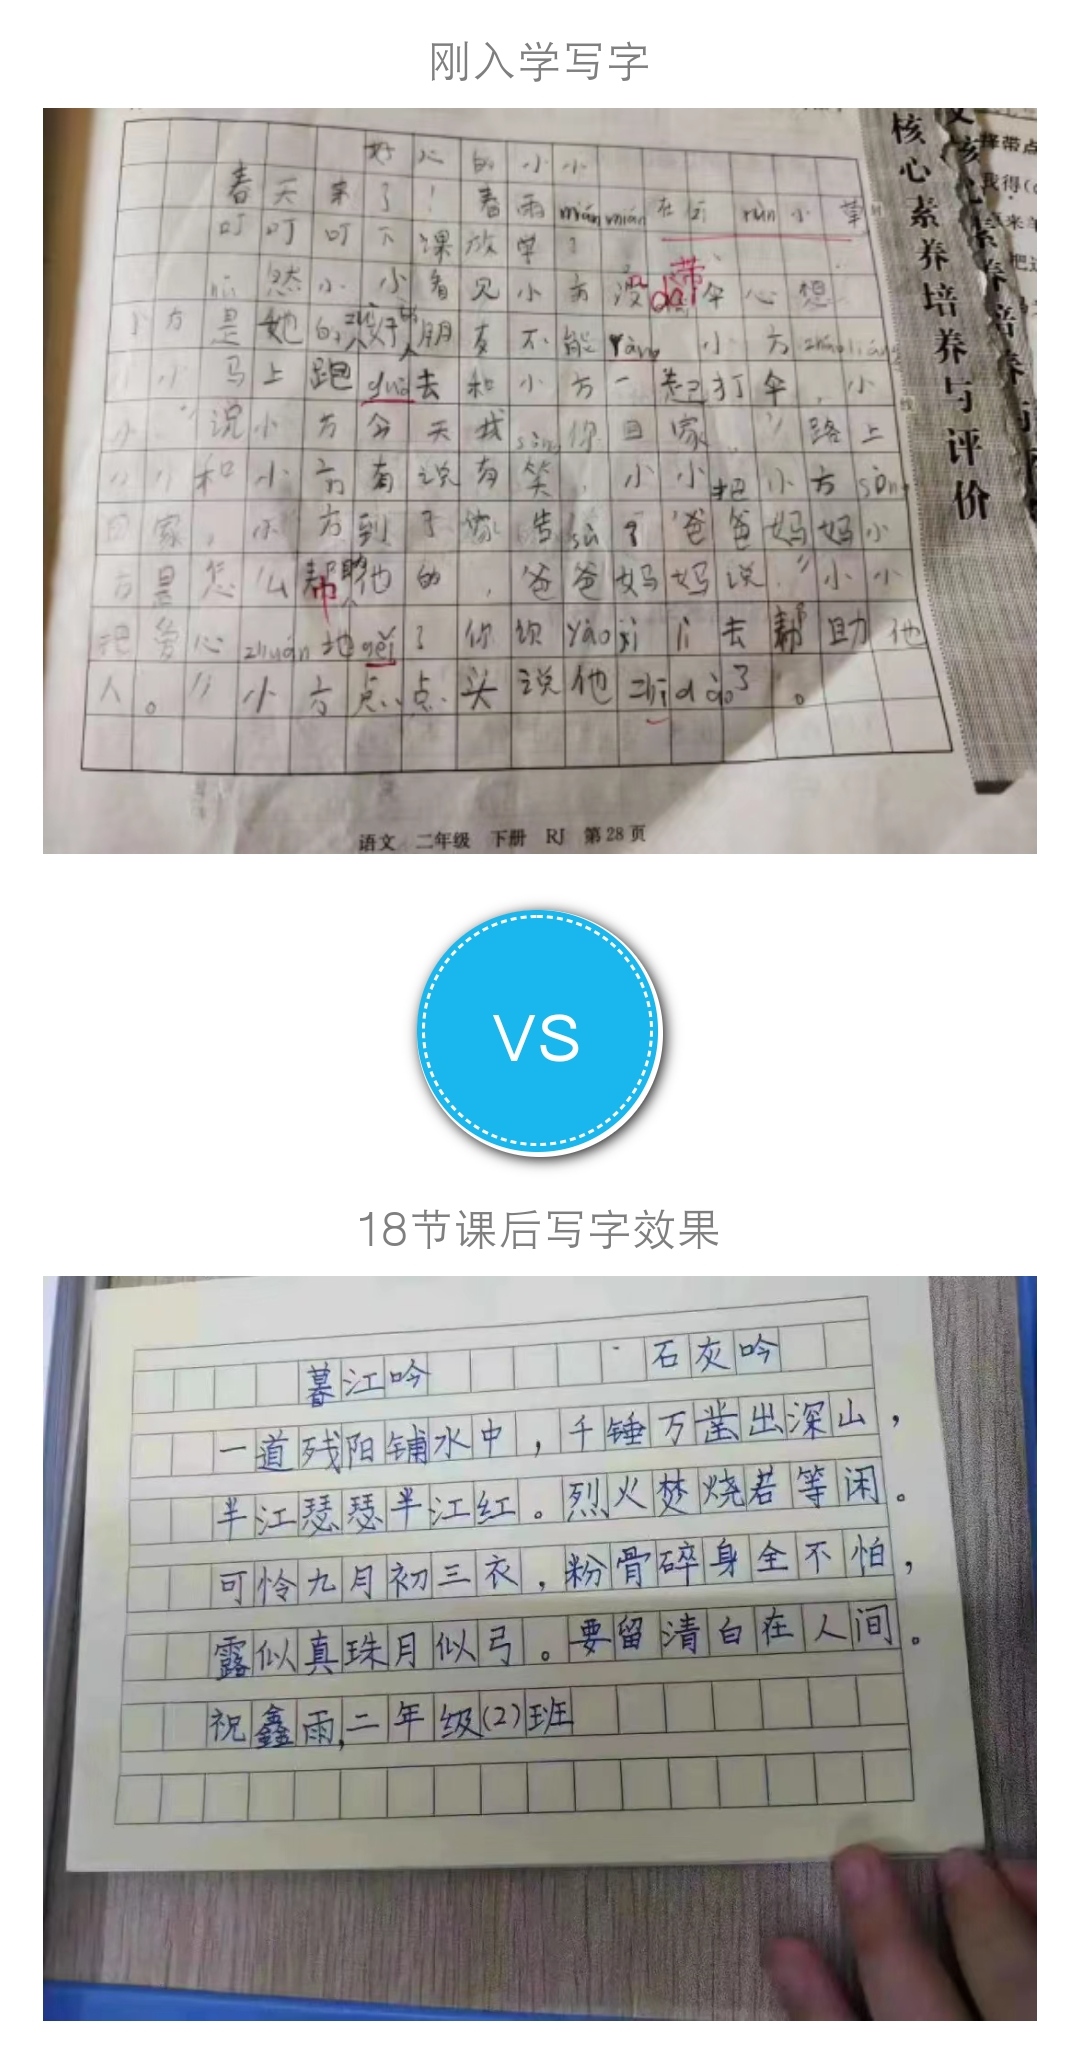 刚入学写字
好心的小小
春天来了！春雨miánmián在rùn小草
叮叮叮下课放学了
然小小看见小方没dài带伞心想
小方是她的好朋友不能ràng小方zháoliáng
小小马上跑guò去和小方一起打伞，小
小“说小方今天我sòng你回家”路上
小小和小方有说有笑，小小把小方sòng
回家，小方到了家告sù了爸爸妈妈小
方是怎么帮他的，爸爸妈妈说“小小
把爱心zhuán地gěi了你yàoxí去帮助他
人。”小方点点头说他zhīdào了。
语文 二年级 下册 RJ 第28页
核心素养培养与评价
择带点
我得(
来羊
VS
18节课后写字效果
暮江吟 石灰吟
一道残阳铺水中，千锤万凿出深山，
半江瑟瑟半江红。烈火焚烧若等闲。
可怜九月初三衣，粉骨碎身全不怕，
露似真珠月似弓。要留清白在人间。
祝鑫雨，二年级(2)班